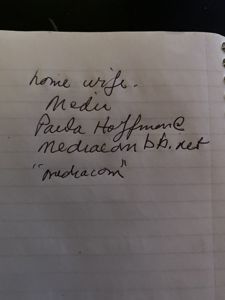 home wife.
Medi
Paula Hoffman@
mediacombb.net
"mediacom"